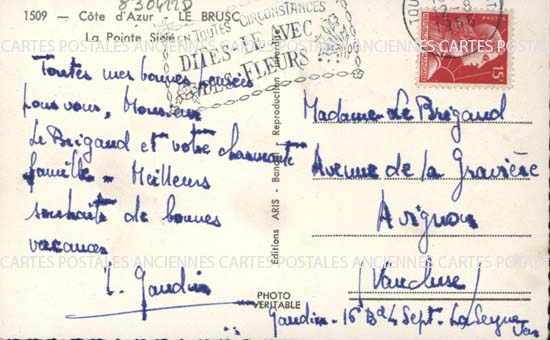 8304112D
1509 - Côte d'Azur - LE BRUSC
La Pointe Sicié
EN TOUTES CIRCONSTANCES
DITES-LE AVEC
DES FLEURS
15F
Toutes mes bonnes pensées
pour vous, Monsieur
Le Brigand et votre charmante
famille - Meilleurs
souhaits de bonnes
vacances
Gaudin
Éditions ARIS - Bandol - Reproduction interdite
PHOTO
VERITABLE
Madame Le Brigand
Avenue de la Gravière
Avignon
(Vaucluse)
Gaudin - 16 Bd 4 Sept. La Seyne
Var
CARTES POSTALES ANCIENNES CARTES POSTALES ANCIENNES